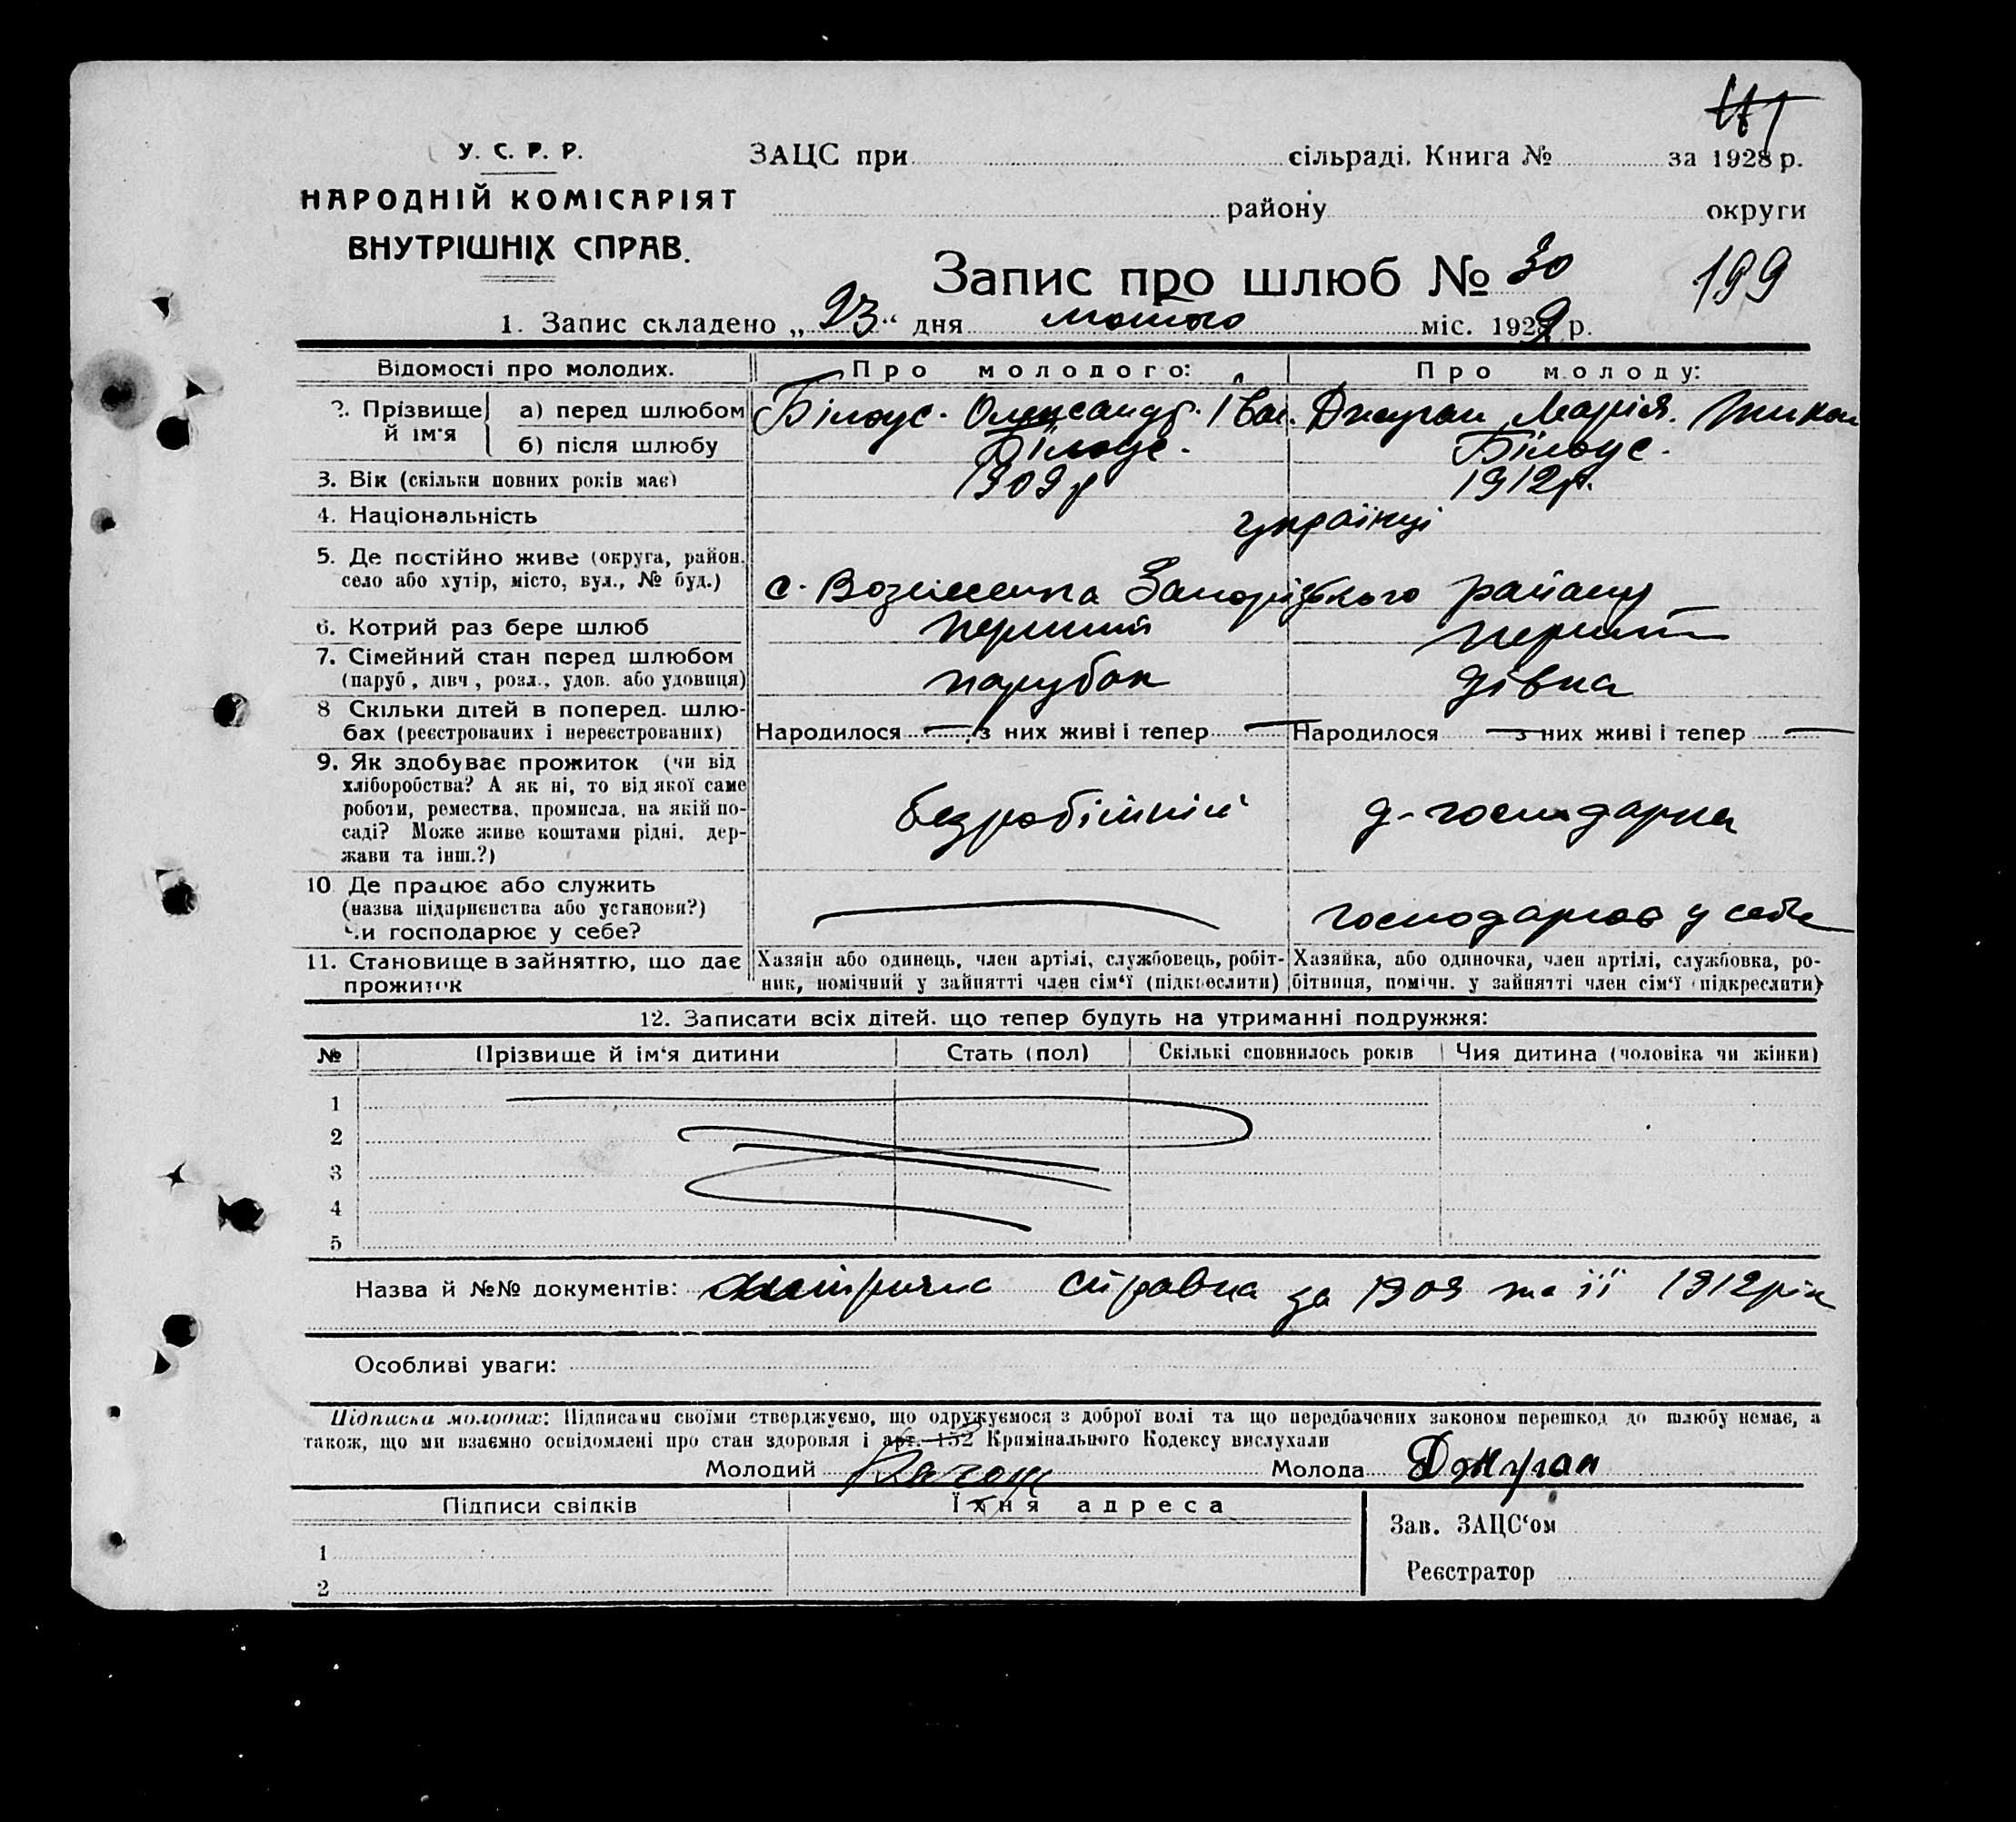 У. С. Р. Р.
НАРОДНІЙ КОМІСАРІЯТ
ВНУТРІШНІХ СПРАВ.
ЗАЦС при сільраді. Книга № за 1928 р.
району округи
Запис про шлюб № 30
199
1. Запис складено „23“ дня лютого міс. 1929 р.
Відомості про молодих. Про молодого: Про молоду:
2. Прізвище й ім'я а) перед шлюбом Білоус. Олександр. Іван. Джуган Марія. Никон
б) після шлюбу Білоус. Білоус.
3. Вік (скільки повних років має) 1909 р 1912 р.
4. Національність українці
5. Де постійно живе (округа, район, село або хутір, місто, вул., № буд.) с. Вознесенка Запорізького району
6. Котрий раз бере шлюб перший перший
7. Сімейний стан перед шлюбом (паруб, дівч, розл., удов. або удовиця) парубок дівка
8 Скільки дітей в поперед. шлюбах (реєстрованих і нереєстрованих) Народилося — з них живі і тепер — Народилося — з них живі і тепер —
9. Як здобуває прожиток (чи від
хліборобства? А як ні, то від якої саме
роботи, ремества, промисла, на якій по-
саді? Може живе коштами рідні, дер-
жави та інш.?)
безробітний д-господарка
10 Де працює або служить
(назва підприєнства або установи?)
Чи господарює у себе?
господарює у себе
11. Становище в зайняттю, що дає прожиток
Хазяїн або одинець, член артілі, службовець, робіт-
ник, помічний у зайнятті член сім'ї (підкреслити)
Хазяйка, або одиночка, член артілі, службовка, ро-
бітниця, помічн. у зайнятті член сім'ї (підкреслити)
12. Записати всіх дітей. що тепер будуть на утриманні подружжя:
№ Прізвище й ім'я дитини Стать (пол) Скількі сповнилось років Чия дитина (чоловіка чи жінки)
1
2
3
4
5
Назва й №№ документів: метрична справка за 1909 та її 1912 рік
Особливі уваги:
Підписка молодих: Підписами своїми стверджуємо, що одружуємося з доброї волі та що передбачених законом перешкод до шлюбу немає, а
також, що ми взаємно освідомлені про стан здоровля і арт. 152 Кримінального Кодексу вислухали
Молодий Молода Джуган
Підписи свідків Їхня адреса
1
2
Зав. ЗАЦС'ом
Реєстратор